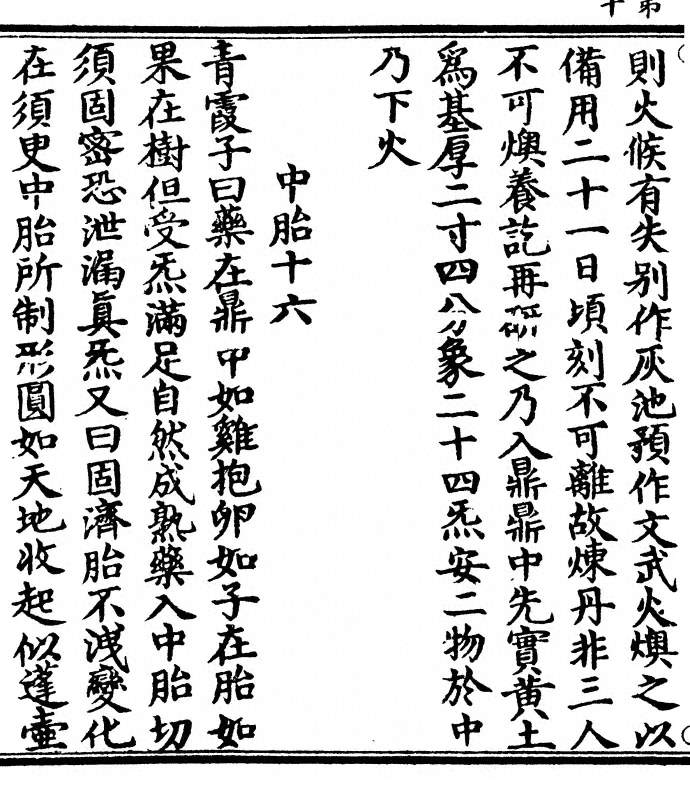 第十
則火候有失別作灰池預作文武火燠之以
備用二十一日頃刻不可離故煉丹非三人
不可燠養訖再研之乃入鼎鼎中先實黃土
爲基厚二寸四分象二十四炁安二物於中
乃下火
中胎十六
青霞子曰藥在鼎中如雞抱卵如子在胎如
果在樹但受炁滿足自然成熟藥入中胎切
須固密恐泄漏眞炁又曰固濟胎不洩變化
在須臾中胎所制形圓如天地收起似蓬壺